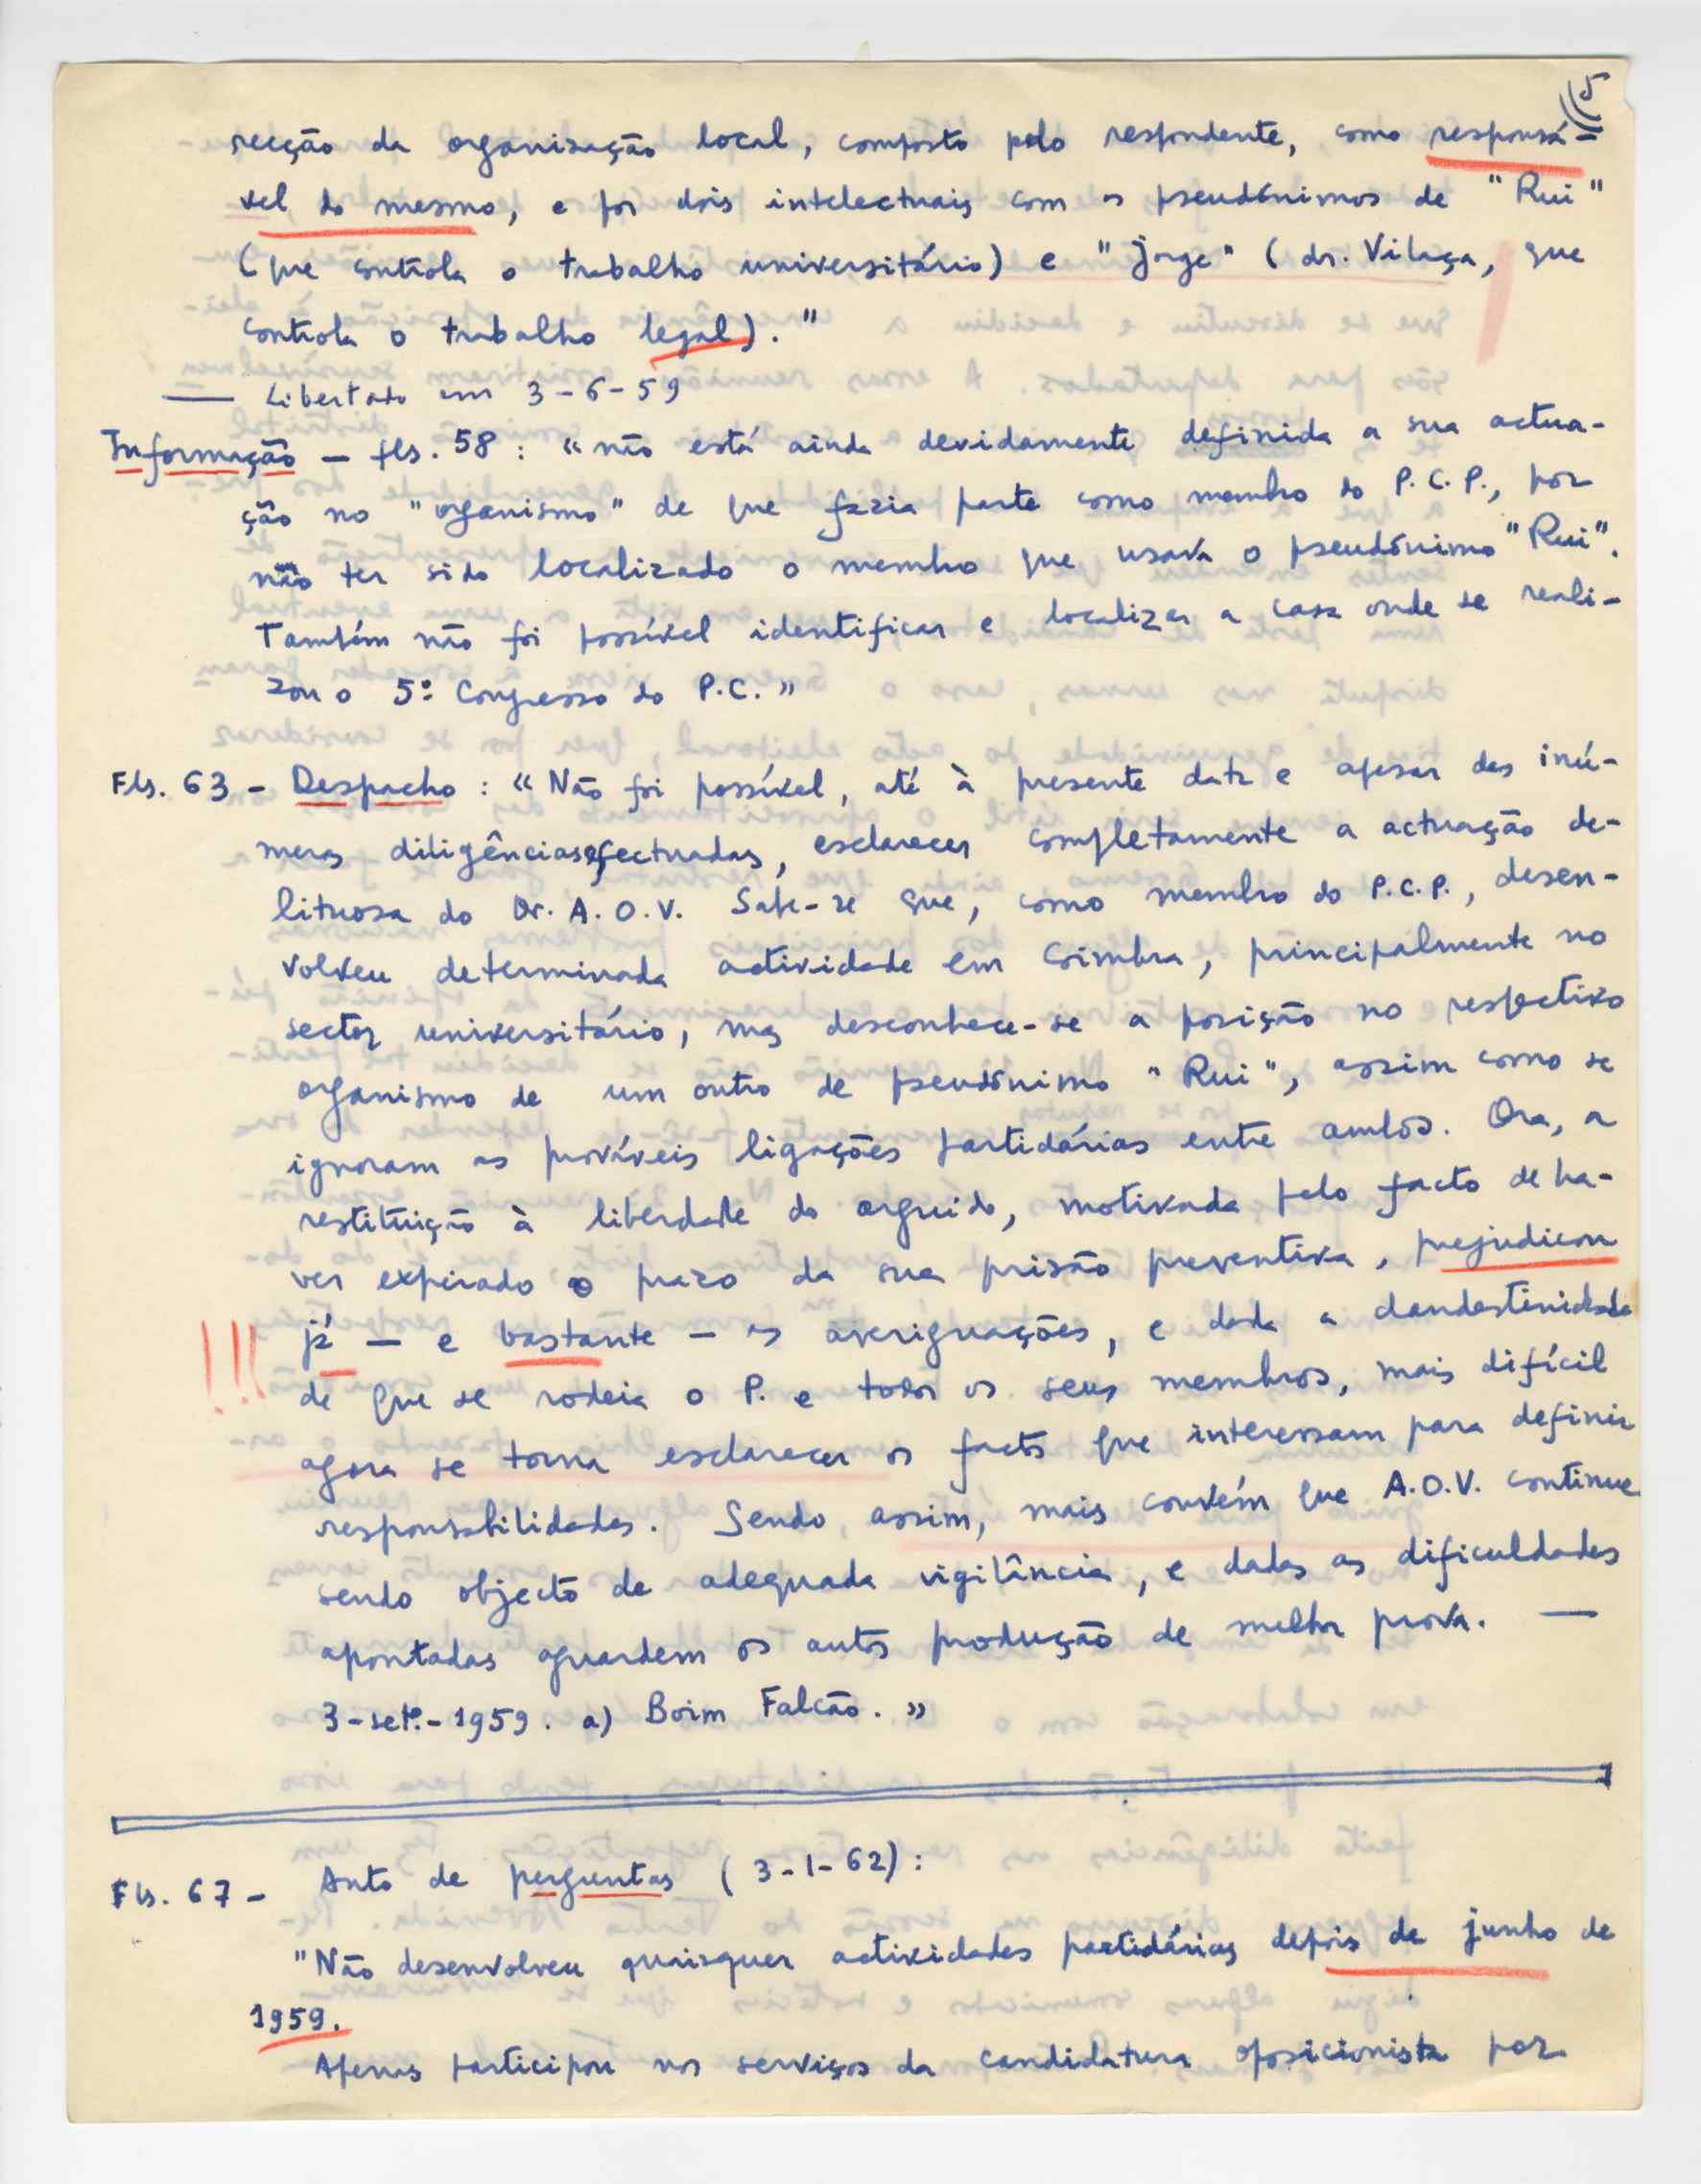 5
recção da organização local, composto pelo respondente, como responsá-
vel do mesmo, e por dois intelectuais com os pseudónimos de "Rui"
(que controla o trabalho universitário) e "Jorge" (dr. Vilaça, que
controla o trabalho legal)."
— Libertado em 3-6-59
Informação — fls. 58 : «não está ainda devidamente definida a sua actua-
ção no "organismo" de que fazia parte como membro do P.C.P., por
não ter sido localizado o membro que usava o pseudónimo "Rui".
Também não foi possível identificar e localizar a casa onde se reali-
zou o 5º Congresso do P.C.»
Fls. 63 - Despacho : «Não foi possível, até à presente data e apesar das inú-
meras diligências efectuadas, esclarecer completamente a actuação de-
lituosa do Dr. A.O.V. Sabe-se que, como membro do P.C.P., desen-
volveu determinada actividade em Coimbra, principalmente no
sector universitário, mas desconhece-se a posição no respectivo
organismo de um outro de pseudónimo "Rui", assim como se
ignoram as prováveis ligações partidárias entre ambos. Ora, a
restituição à liberdade do arguido, motivada pelo facto de ha-
ver expirado o prazo da sua prisão preventiva, prejudicou
!!! já — e bastante — as averiguações, e dada a clandestinidade
de que se rodeia o P. e todos os seus membros, mais difícil
agora se torna esclarecer os factos que interessam para definir
responsabilidades. Sendo, assim, mais convém que A.O.V. continue
sendo objecto de adequada vigilância, e dadas as dificuldades
apontadas aguardem os autos produção de melhor prova. —
3-setº-1959. a) Boim Falcão.»
Fls. 67 - Auto de perguntas (3-1-62):
"Não desenvolveu quaisquer actividades partidárias depois de junho de
1959.
Apenas participou nos serviços da candidatura oposicionista por